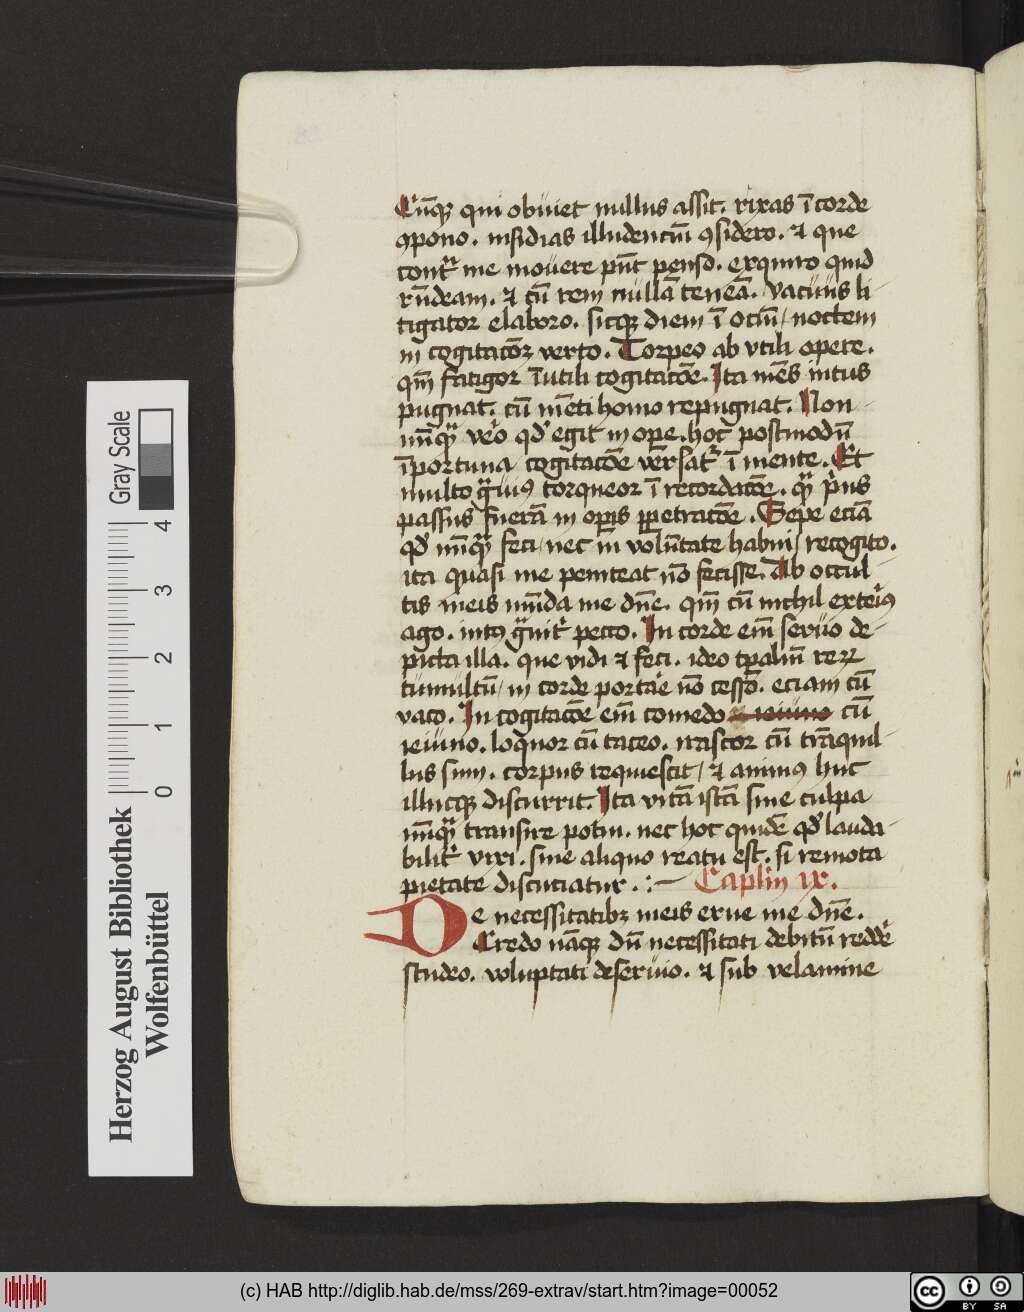 Cūqꝫ qui obuiet nullus assit. rixas ī corde
ꝯpono. insidias illudenciū ꝯsidero. ⁊ que
contᷓ me mouere pn̄t penso. exquiro quid
rn̄deam. ⁊ cū rem nullā teneā. vacuus li
tigator elaboro. sicqꝫ diem ī ociū / noctem
in cogitacōꝫ verto. Torpeo ab vtili opere.
qm̄ fatigor īutili cogitacōe. Ita mēs intus
pugnat. cū mēti homo repugnat. Non
nūqᷓ vero qd̓ egit in ope. hoc postmodū
īportuna cogitacōe versat᷑ ī mente. Et
multo gᷓuiꝰ torqueor ī recordacōe. qᷓ pͥus
passus fuerā in opis ꝑpetracōe. Sepe eciā
qd̓ nūqᷓ feci / nec in volūtate habui / recogito.
ita quasi me peniteat nō fecisse. Ab occul-
tis meis munda me dn̄e. qm̄ cū nichil exteriꝰ
ago. intꝰ gᷓuit᷑ pecco. In corde em̄ seruo de-
picta illa. que vidi ⁊ feci. ideo tp̄aliū reꝝ
tumultū / in corde portare nō cesso. eciam cū
vaco. In cogitacōe em̄ comedo ieiuno cū
ieiuno. loquor cū taceo. irascor cū trāquil-
lus sum. corpus requiescit / ⁊ animꝰ huc
illucqꝫ discurrit. Ita vitā istā sine culpa
nūqᷓ transire potui. nec hoc quidē qd̓ lauda-
bilit᷑ vixi. sine aliquo reatu est. si remota
pietate discuciatur. Caplm̄ ix.
De necessitatibꝫ meis erue me dn̄e.
Credo nāqꝫ dū necessitati debitū redde
studeo. voluptati deseruio. ⁊ sub velamine
Gray Scale
0 1 2 3 4
Herzog August Bibliothek
Wolfenbüttel
(c) HAB http://diglib.hab.de/mss/269-extrav/start.htm?image=00052
cc
BY SA